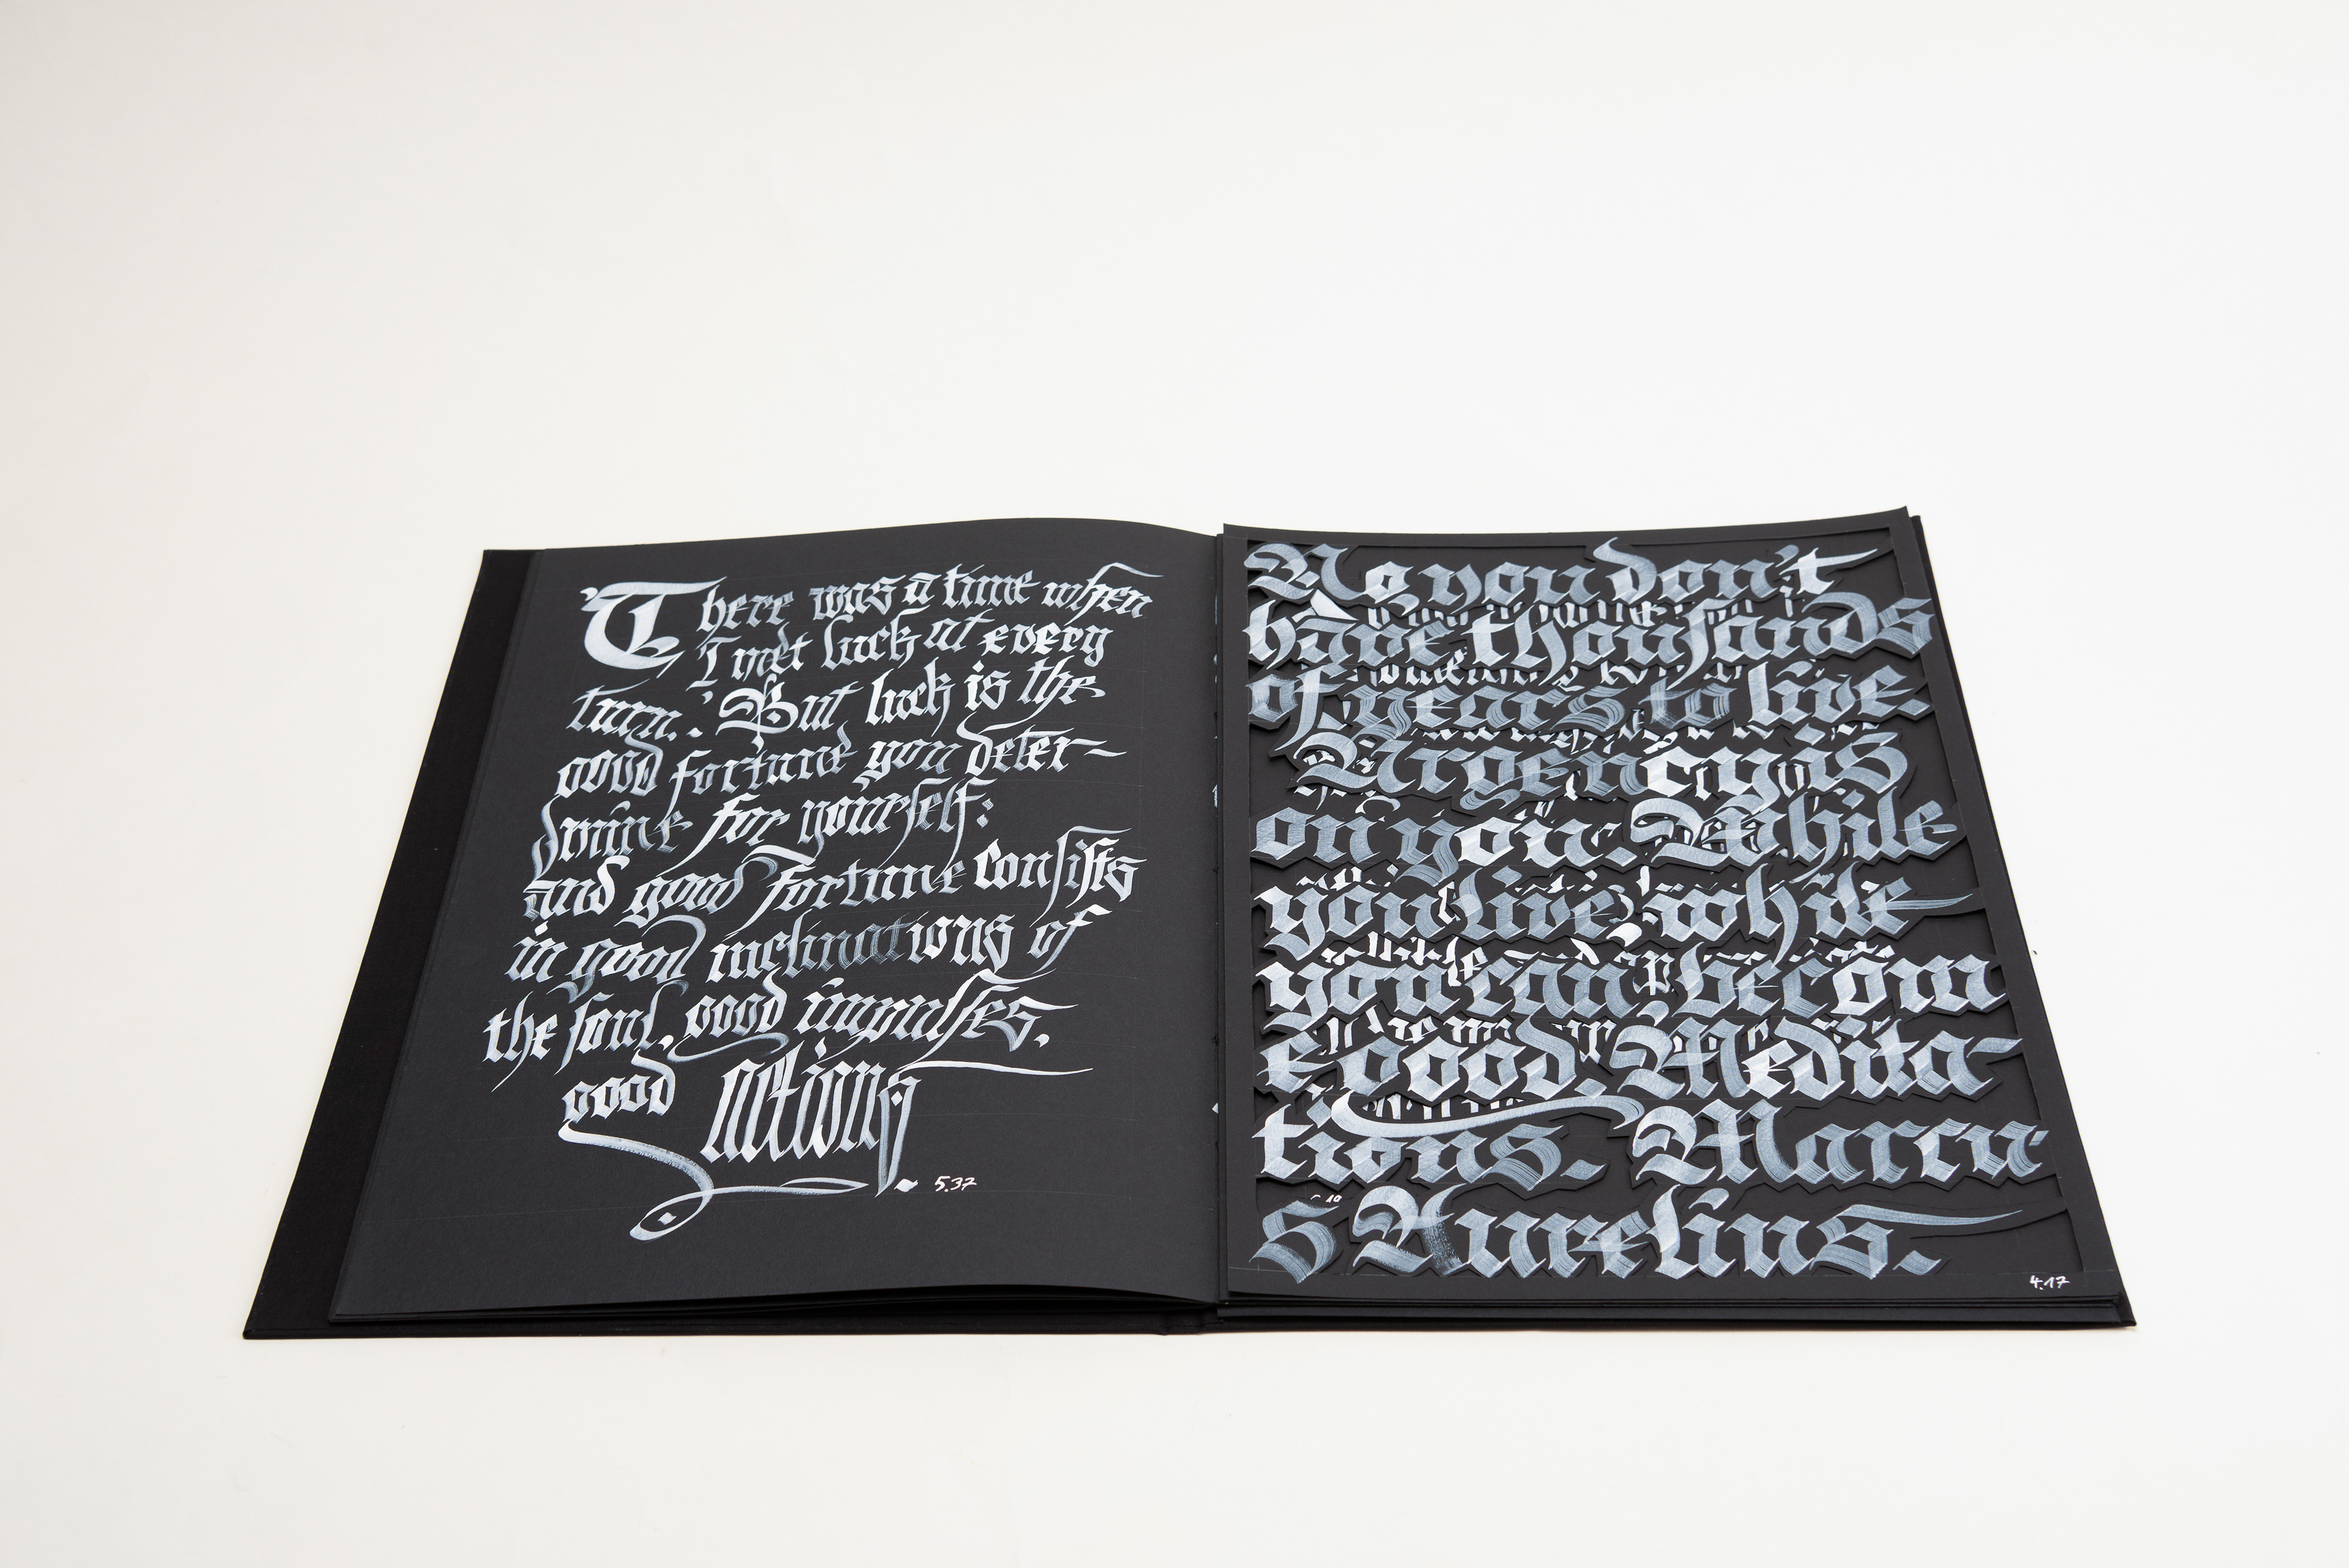 'There was a time when
I met luck at every
turn.' But luck is the
good fortune you deter-
mine for yourself:
and good fortune consists
in good inclinations of
the soul, good impulses,
good actions.
5.37
No you don't
have thousands
of years to live
Urgency is
on you. While
you live, while
you can, becom
e good. Medita-
tions. Marcu-
s Aurelius.
4.17